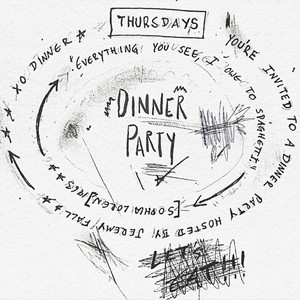 THURSDAYS
YOU'RE INVITED TO A DINNER PARTY HOSTED BY JEREMY FALL
XO DINNER
"EVERYTHING YOU SEE, I OWE TO SPAGHETTI."
[SOPHIA LOREN]
DINNER
PARTY
LET'S
EAT!!